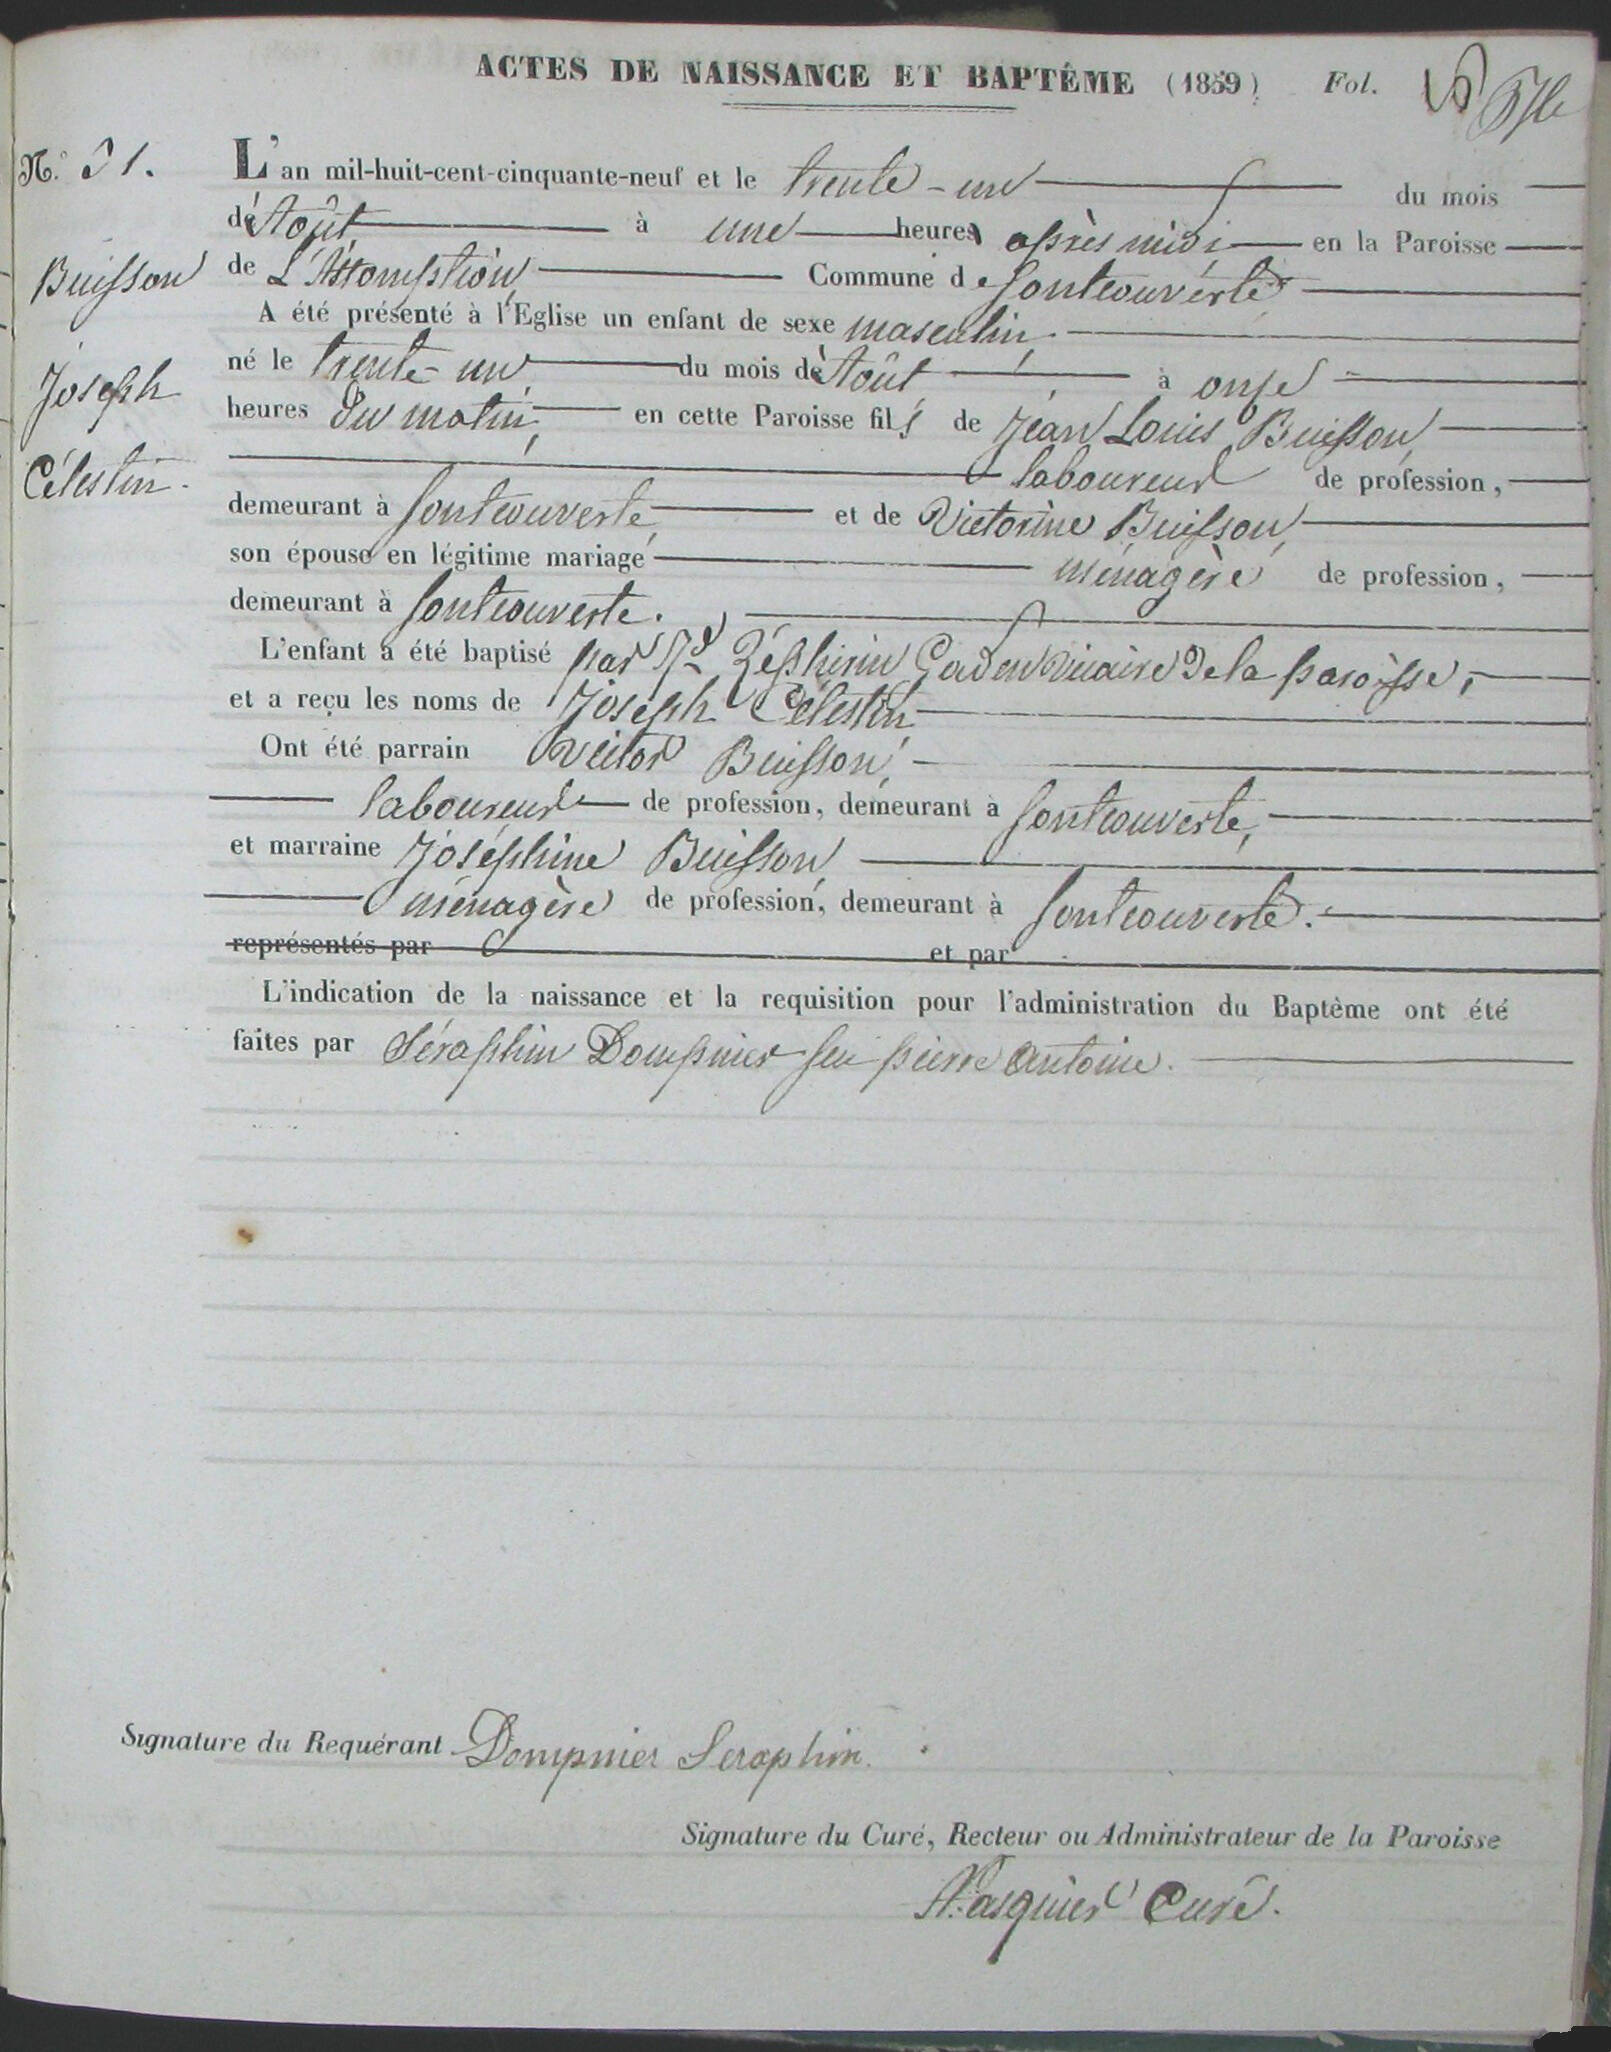 ACTES DE NAISSANCE ET BAPTÊME (1859) Fol.
N.° 31.
L'an mil-huit-cent-cinquante-neuf et le trente-un du mois
d'Août à une heures après midi en la Paroisse
Buisson
de L'Assomption Commune de fontcouverte
A été présenté à l'Eglise un enfant de sexe masculin
né le trente-un du mois d'Août à onze
Joseph
heures du matin, en cette Paroisse fils de Jean Louis Buisson,
Célestin.
laboureur de profession,
demeurant à fontcouverte, et de Victorine Buisson,
son épouse en légitime mariage ménagère de profession,
demeurant à fontcouverte.
L'enfant a été baptisé par Rd Zéphirin vicaire de la paroisse,
et a reçu les noms de Joseph Célestin
Ont été parrain Victor Buisson,
laboureur de profession, demeurant à fontcouverte,
et marraine Joséphine Buisson,
ménagère de profession, demeurant à fontcouverte.
représentés par et par
L'indication de la naissance et la requisition pour l'administration du Baptême ont été
faites par Séraphin Dompnier feu pierre antoine.
Signature du Requérant Dompnier Seraphin.
Signature du Curé, Recteur ou Administrateur de la Paroisse
Pasquier Curé.